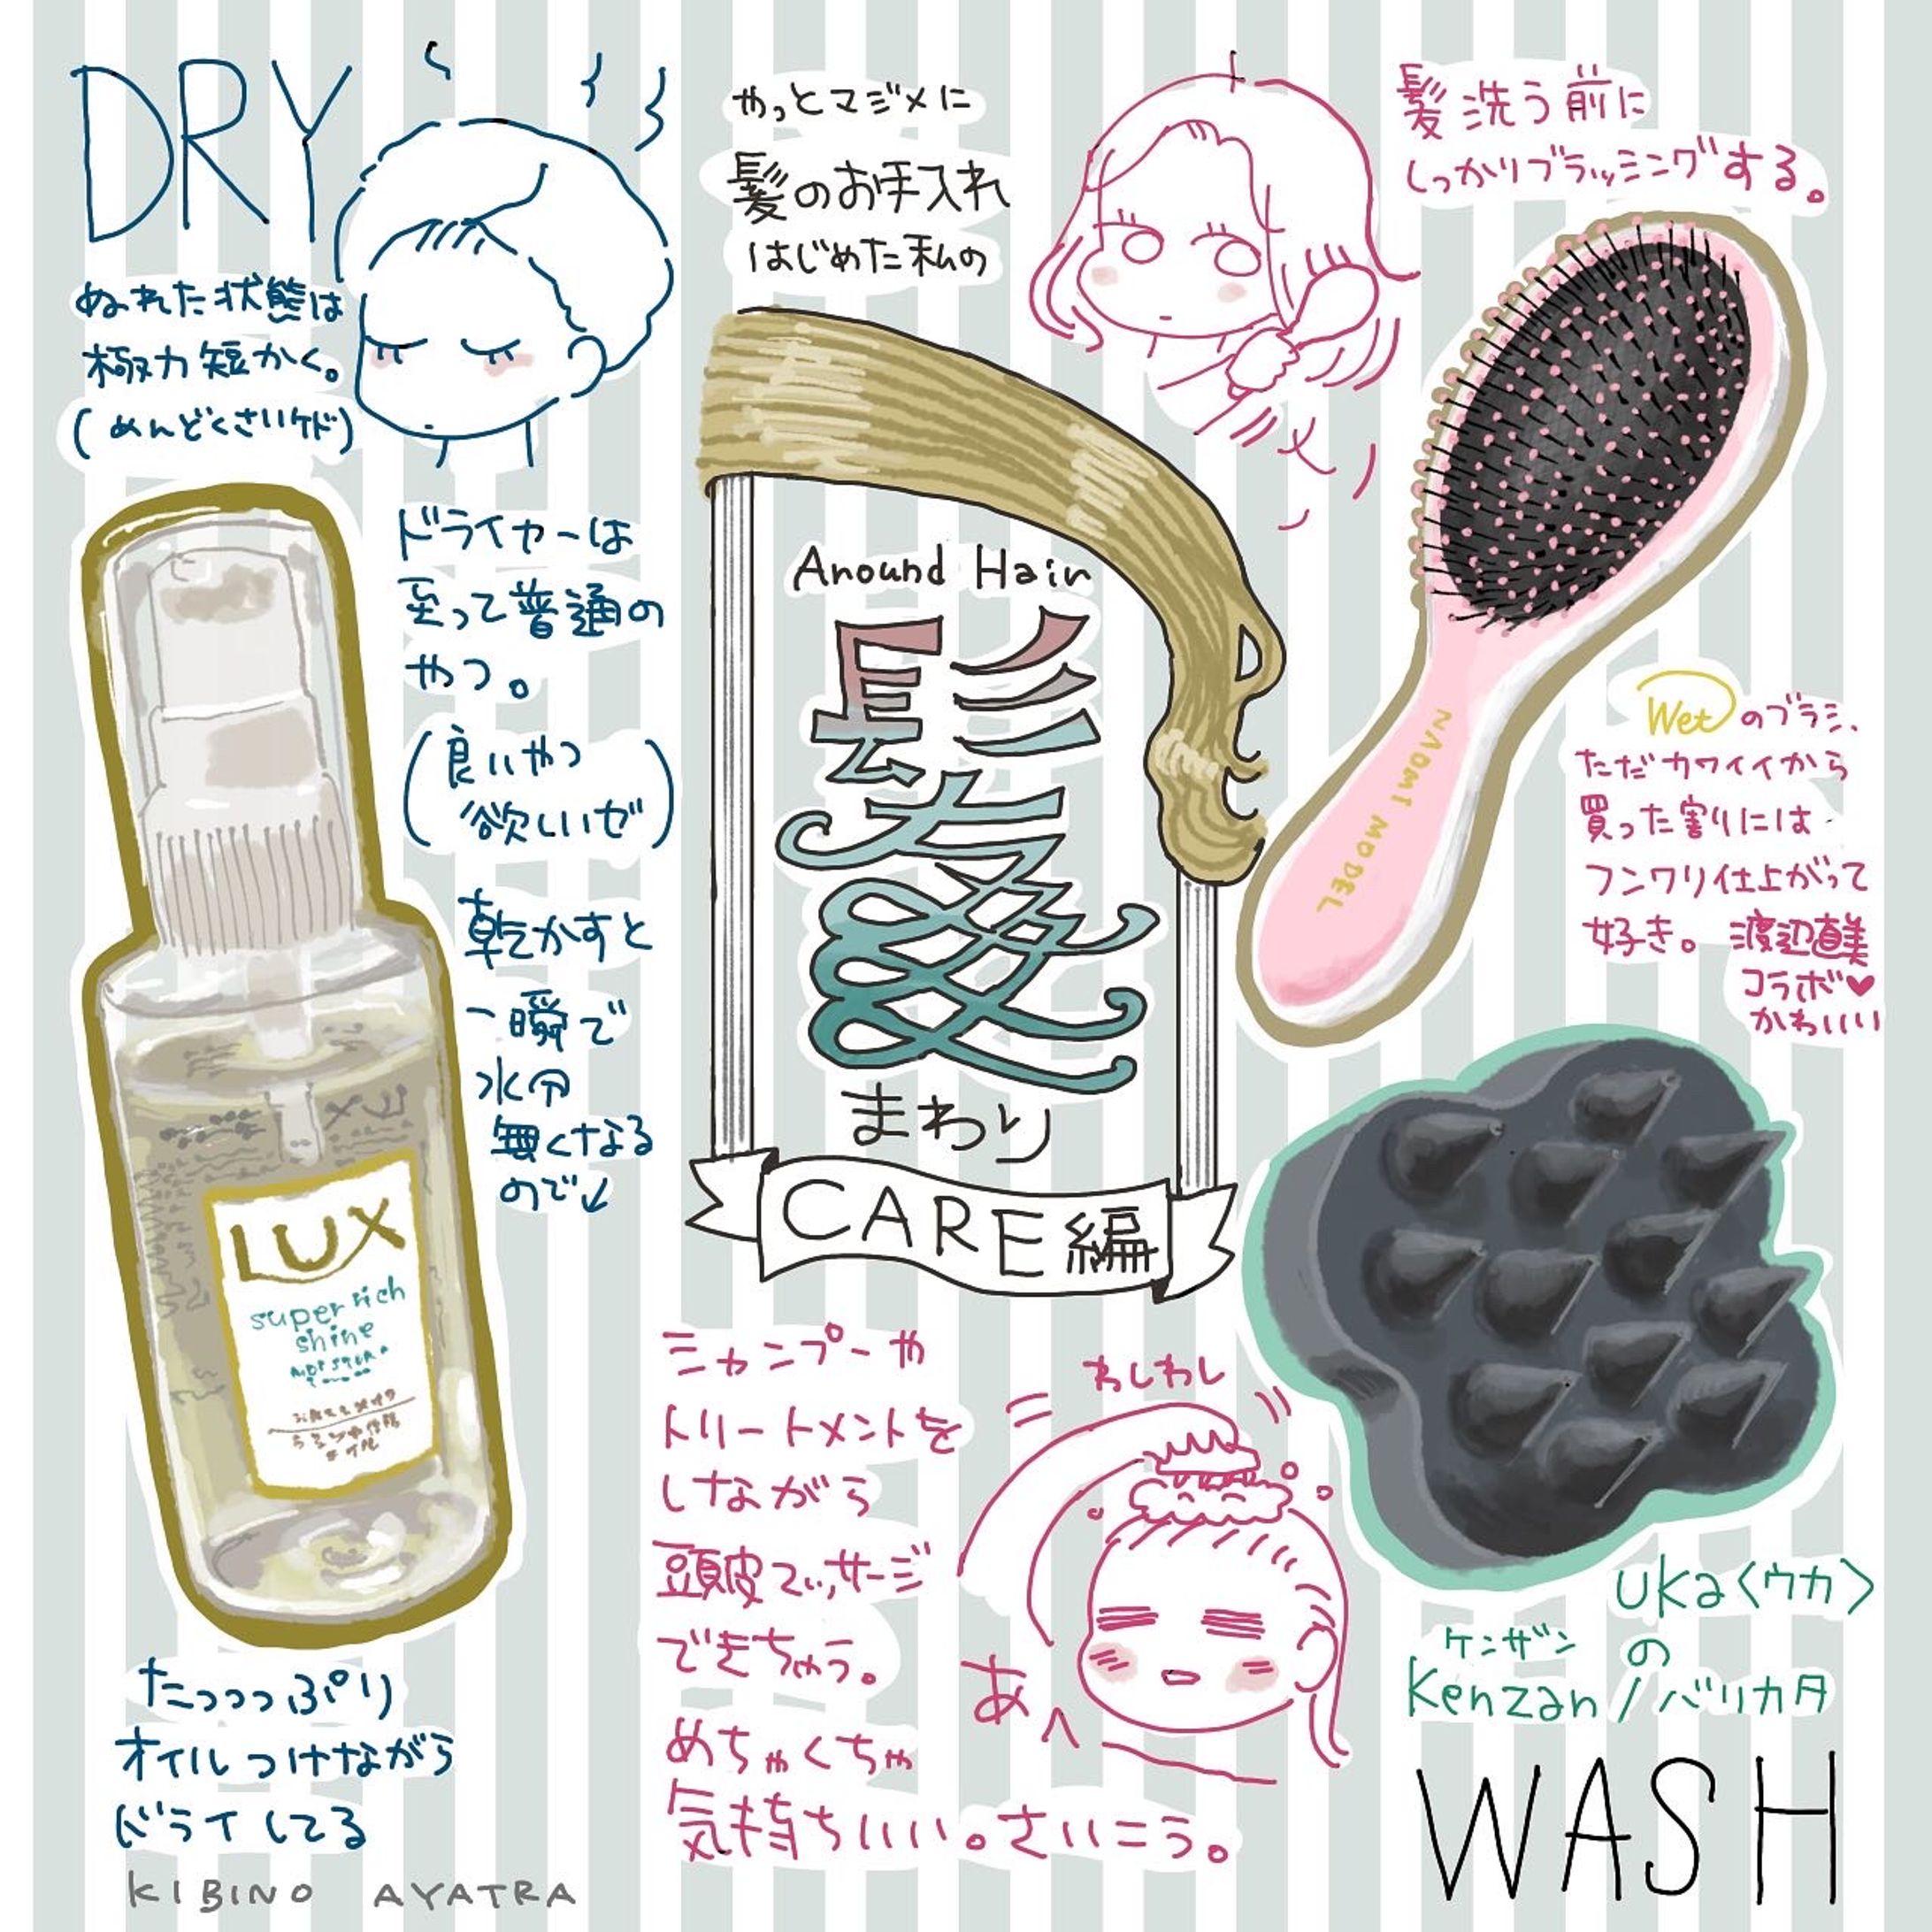 やっとマジメに
髪のお手入れ
はじめた私の
Around Hair
髪
まわり
CARE編
髪洗う前に
しっかりブラッシングする。
NAOMI MODEL
Wetのブラシ、
ただカワイイから
買った割りには
フンワリ仕上がって
好き。渡辺直美
コラボ♥
かわいい
uka〈ウカ〉
の
ケンザン
Kenzan/バリカタ
WASH
シャンプーや
トリートメントを
しながら
頭皮マッサージ
できちゃう。
めちゃくちゃ
気持ちいい。さいこう。
わしわし
あ〜
DRY
ぬれた状態は
極力短かく。
(めんどくさいケド)
ドライヤーは
至って普通の
やつ。
(良いやつ
欲しいぜ)
乾かすと
一瞬で
水分
無くなる
ので↓
LUX
super rich
shine
たっっっぷり
オイルつけながら
ドライしてる
KIBINO AYATRA